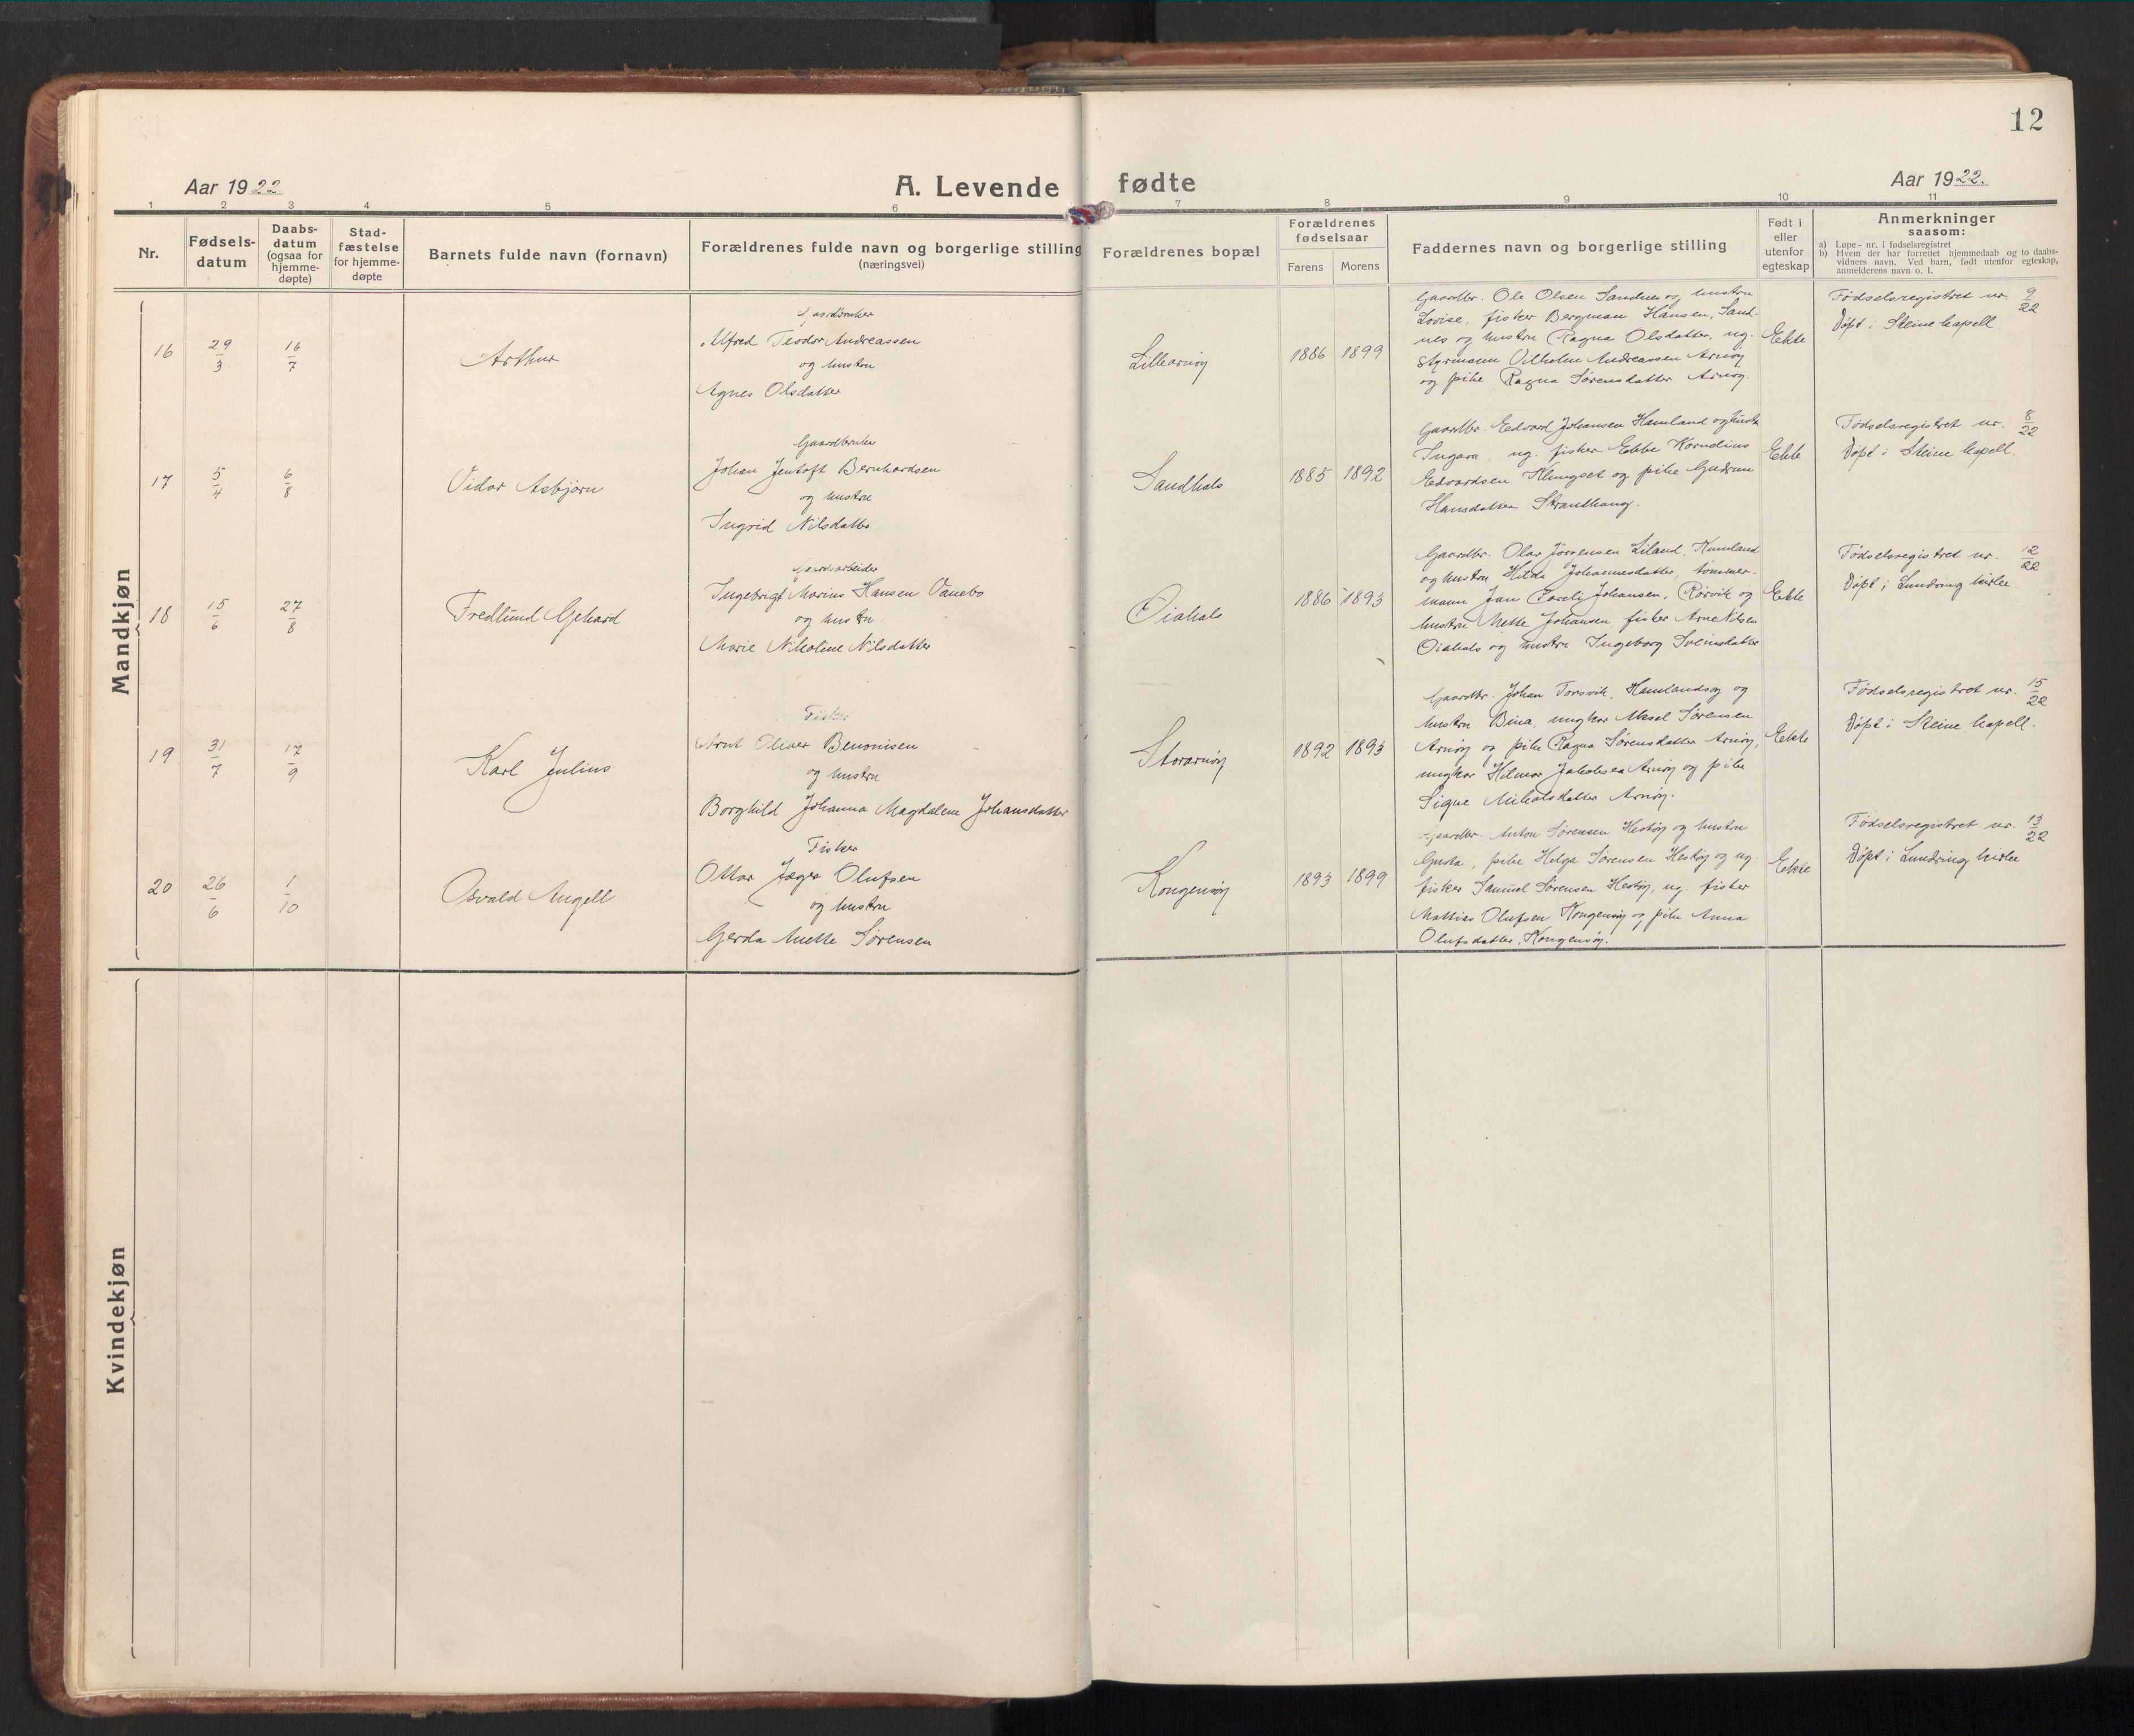 12
Aar 1922
A. Levende fødte
Aar 1922.
1 2 3 4 5 6 7 8 9 10 11
Nr.
Fødsels-
datum
Daabs-
datum
(ogsaa for
hjemme-
døpte)
Stad-
fæstelse
for hjemme-
døpte
Barnets fulde navn (fornavn)
Forældrenes fulde navn og borgerlige stilling
(næringsvei)
Forældrenes bopæl
Forældrenes
fødselsaar
Farens Morens
Faddernes navn og borgerlige stilling
Født i
eller
utenfor
egteskap
Anmerkninger
saasom:
a) Løpe-nr. i fødselsregistret
b) Hvem der har forrettet hjemmedaab og to daabs-
vidners navn. Ved barn, født utenfor egteskap,
anmelderens navn o. l.
Mandkjøn
16
29/3
16/7
Arthur
Gaardbruker
Alfred Teodor Andreassen
og hustru
Agnes Olsdatter
Lillearnøy
1886 1899
Gaardbr. Ole Olsen Sandnes og hustru
Lovise, fisker Bergman Hansen, Sand-
nes og hustru Ragna Olsdatter, ug.
styrmann Vilhelm Andreassen Arnøy
og pike Ragna Sørensdatter Arnøy.
Ekte
Fødselsregistret nr. 9/22
Døpt i Steine kapell.
17
5/4
6/8
Vidar Asbjørn
Gaardbruker
Johan Jentoft Bernhardsen
og hustru
Ingrid Nilsdatter
Sandhals
1885 1892
Gaardbr. Edvard Johansen Hamland og hustru
ug. fisker Ebbe Kornelius
Edvardsen Klungset og pike Gudrun
Hansdatter Strandhaug.
Ekte
Fødselsregistret nr. 8/22
Døpt i Steine kapell.
18
15/6
27/8
Fredlund Gehard
Gaardsarbeider
Ingebrigt Marius Hansen Vanebo
og hustru
Marie Nikoline Nilsdatter
Øiahals
1886 1893
Gaardbr. Olav Jørgensen Liland,
og hustru Hilda Johannesdatter, tømmer-
mann Jan Johansen, Rørvik og
hustru Mette Johansen, fisker Arne Nilsen
Øiahals og hustru Ingeborg Sveinsdatter
Ekte
Fødselsregistret nr. 12/22
Døpt i Lundring kirke.
19
31/7
17/9
Karl Julius
Fisker
Arnt Oliver Benonisen
og hustru
Borghild Johanna Magdalene Johansdatter
Storarnøy
1892 1893
Gaardbr. Johan Torsvik, Hamlandsøy og
hustru Bina, ungkar Aksel Sørensen
Arnøy og pike Ragna Sørensdatter Arnøy,
ungkar Hilmar Jakobsen Arnøy og pike
Signe Mikalsdatter Arnøy.
Ekte
Fødselsregistret nr. 15/22
Døpt i Steine kapell.
20
26/6
1/10
Osvald Angell
Fisker
Ottar Jæger Olufsen
og hustru
Gerda Anette Sørensen
Kongensøy
1893 1899
Gaardbr. Anton Sørensen Hestøy og hustru
Gusta, pike Helga Sørensen Hestøy og ug.
fisker Samuel Sørensen Hestøy, ug. fisker
Mathias Olufsen Kongensøy og pike Anna
Olufsdatter, Kongensøy.
Ekte
Fødselsregistret nr. 13/22
Døpt i Lundring kirke
Kvindekjøn